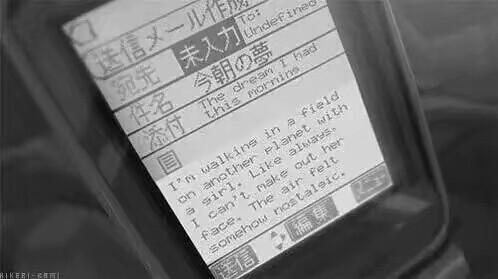 送信メール作成
宛先 未入力 To: Undefined
件名 今朝の夢
The dream I had
this morning
添付
I'm walking in a field
on another planet with
a girl. Like always,
I can't make out her
face. The air felt
somehow nostalgic.
送信 編集 メニュー